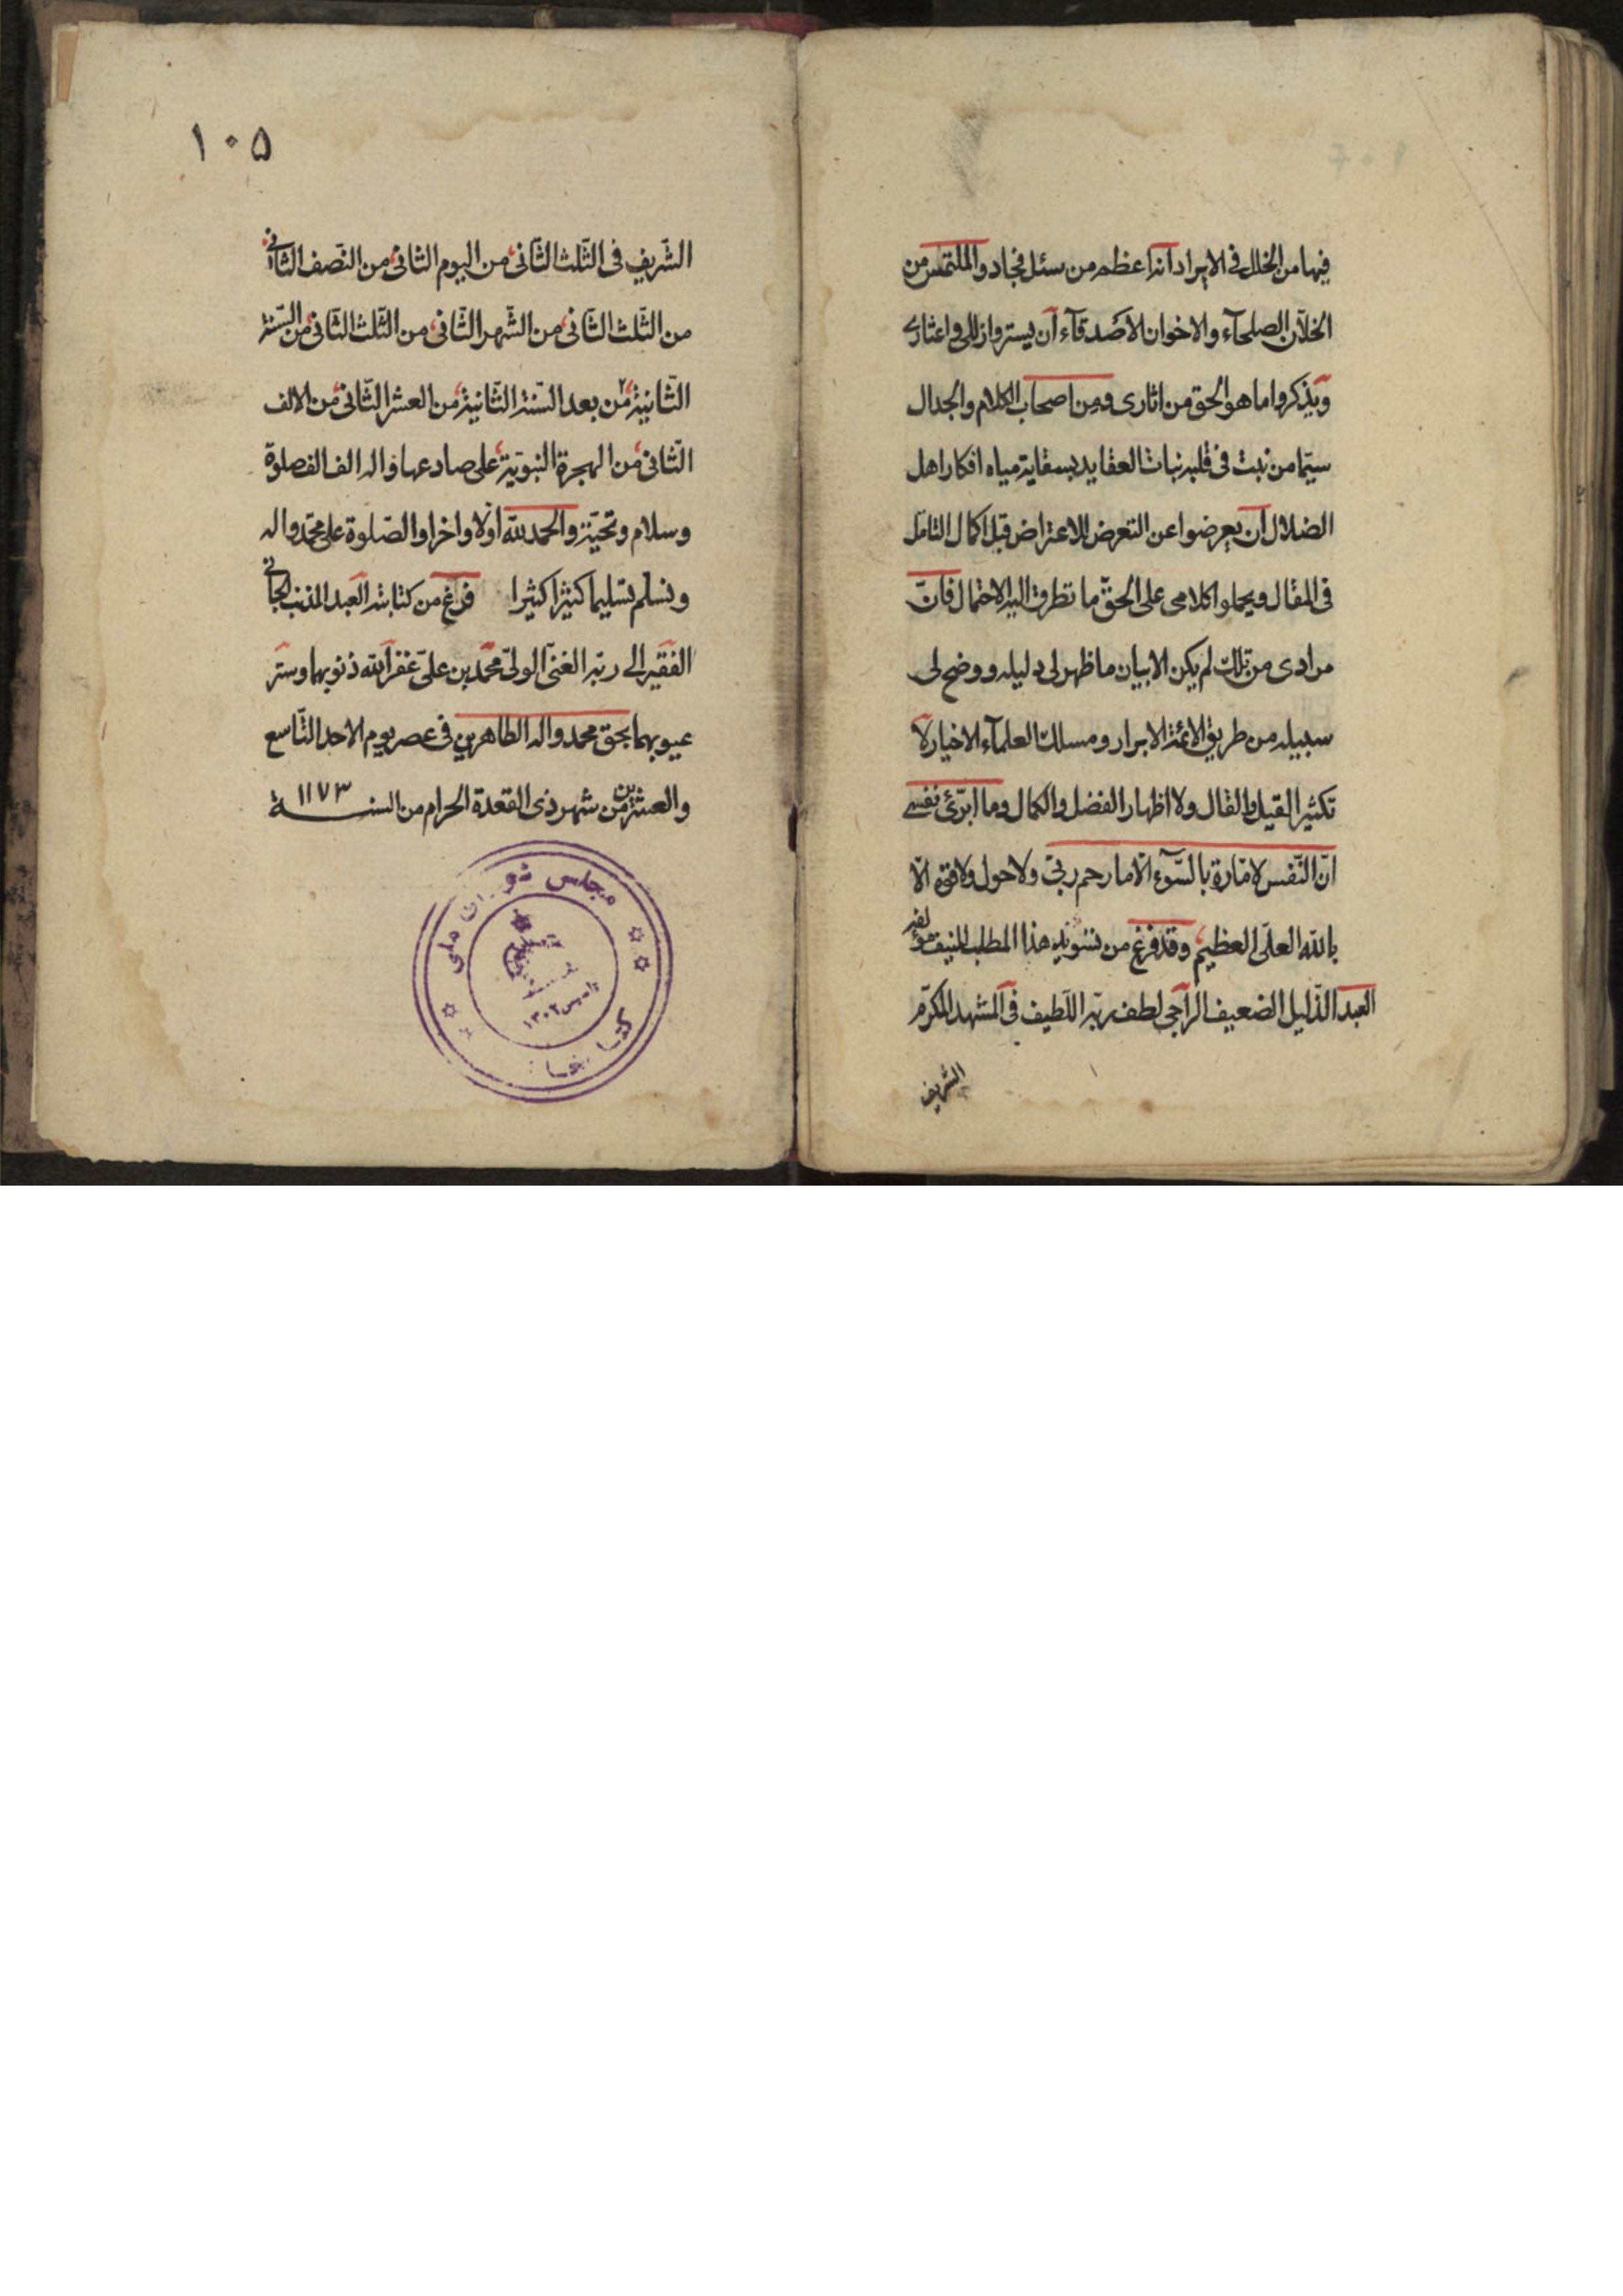 فيها من الخلل في الايراد انه اعظم من سئل فجاد والملتمس من
الخلّان الصلحآء والاخوان الاصدقآء ان يستروا زللي واعثاري
ويذكروا ما هو الحق من اثاري ومن اصحاب الكلام والجدال
سيّما من نبت في قلبه نبات العقايد بسقاية مياه افكار اهل
الضلال ان يعرضوا عن التعرض للاعتراض قبل اكمال التامّل
في المقال ويحملوا كلامي على الحقّ ما تطرق اليه الاحتمال فانّ
مرادي من تلك لم يكن الا بيان ما ظهر لي دليله ووضح لي
سبيله من طريق الائمة الابرار ومسلك العلمآء الاخيار لا
تكثير القيل والقال ولا اظهار الفضل والكمال وما ابرّئ نفسي
انّ النّفس لامّارة بالسّوء الّا ما رحم ربّي ولا حول ولا قوة الّا
بالله العلّى العظيم وقد فرغ من تسويد هذا المطلب المنيف مؤلفه
العبد الذّليل الضعيف الراجي لطف ربّه اللّطيف في المشهد المكرّم
الشريف
١٠٥
الشّريف في الثّلث الثّاني من اليوم الثاني من النّصف الثّاني
من الثّلث الثّاني من الشّهر الثّاني من الثّلث الثّاني من السّنة
الثّانية من بعد السّنة الثّانية من العشر الثّاني من الالف
الثّاني من الهجرة النبويّة على صادعها واله الف الف صلوة
وسلام وتحيّة والحمد لله اولا واخرا والصّلوة على محمّد واله
ونسلم تسليما كثيرا كثيرا فرغ من كتابته العبد المذنب الجاني
الفقير الى ربّه الغنيّ الولىّ محمّد بن علىّ غفر الله ذنوبهما وستر
عيوبهما بحق محمد واله الطاهرين في عصر يوم الاحد التّاسع
والعشرين من شهر ذي القعدة الحرام من السنة ١١٧٣
مجلس شورای ملی
کتابخانه
تاسیس ١٣٠٢